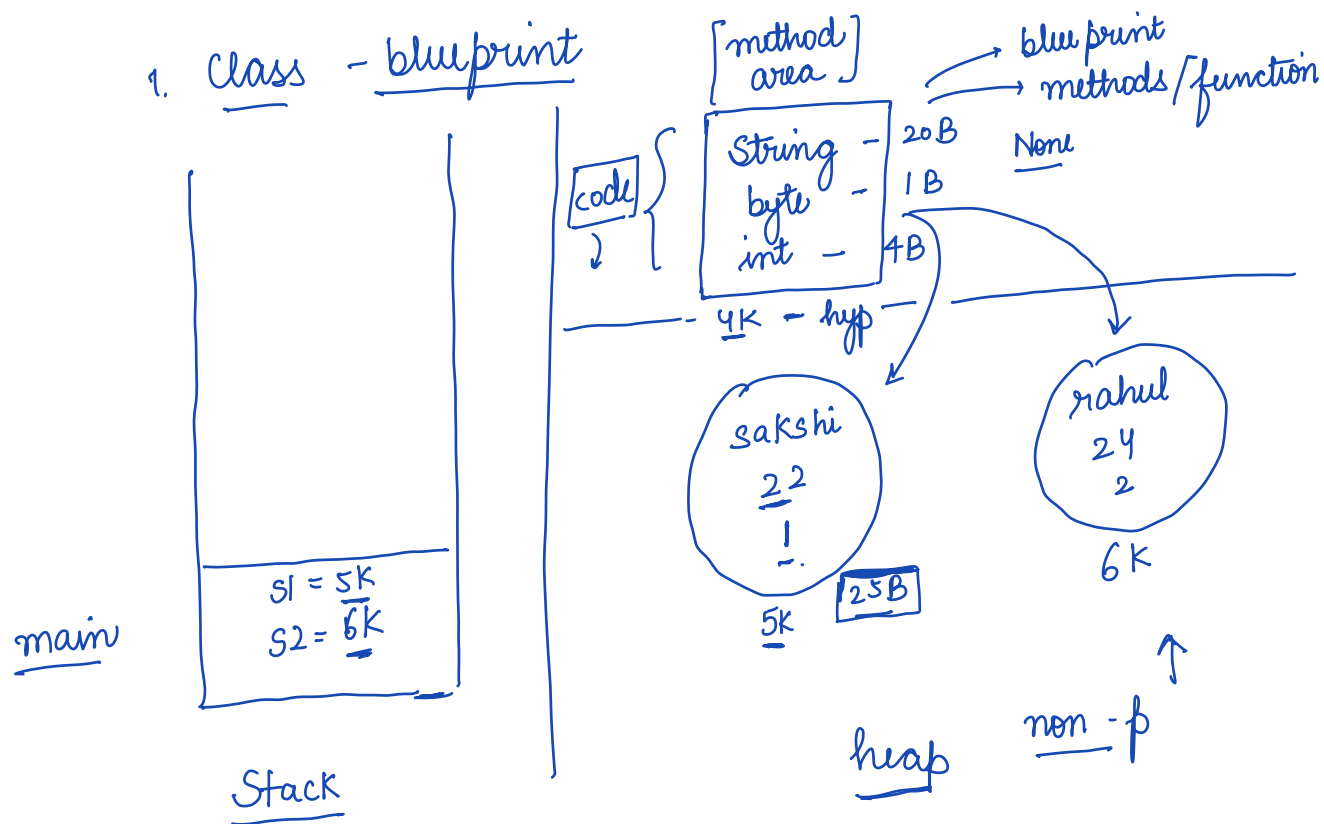 1. Class - blueprint
[method area]
blueprint
methods/function
None
code
String - 20B
byte - 1B
int - 4B
4K - hyp
sakshi
22
1
5K
25B
rahul
24
2
6K
S1 = 5K
S2 = 6K
main
Stack
heap
non-p